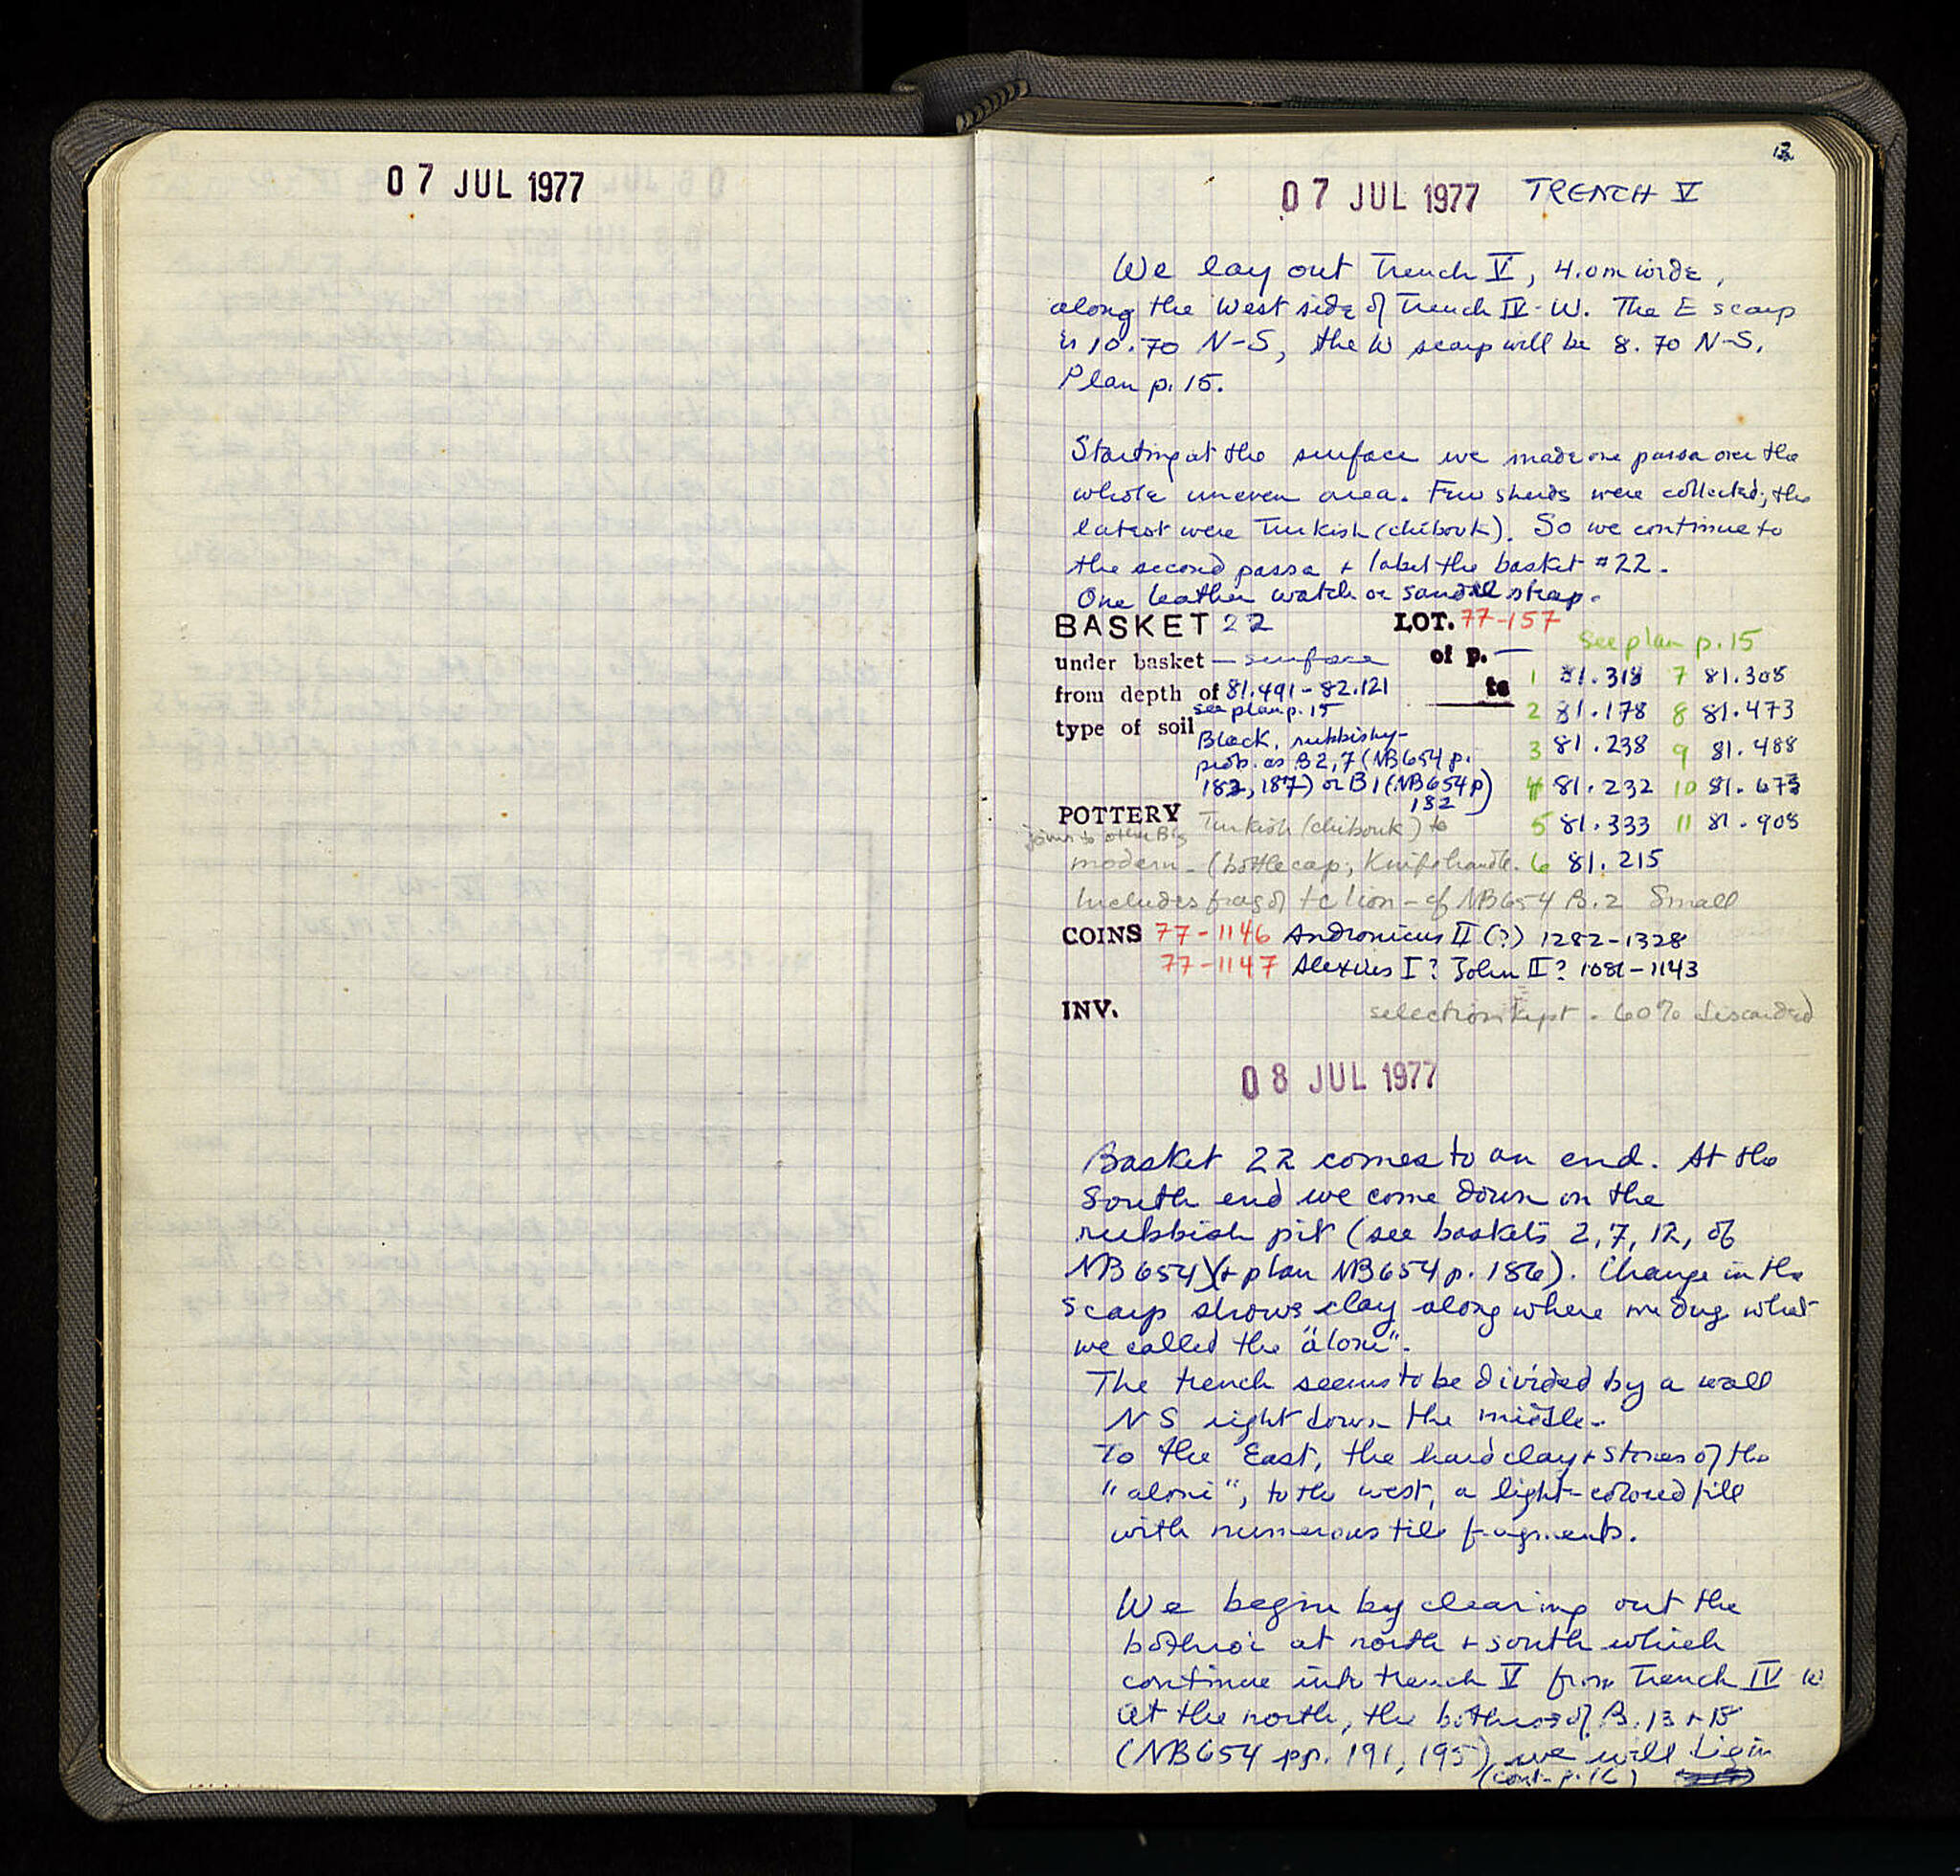 07 JUL 1977
13
07 JUL 1977 TRENCH V
We lay out Trench V, 4.0m wide,
along the West side of Trench IV-W. The E scarp
is 10.70 N-S, the W scarp will be 8.70 N-S.
Plan p. 15.
Starting at the surface we made one passa over the
whole uneven area. Few sherds were collected; the
latest were Turkish (chibouk). So we continue to
the second passa + label the basket #22.
One leather watch or sandal strap.
BASKET 22 LOT. 77-157
see plan p. 15
under basket – surface of p. —
from depth of 81.491-82.121 to
see plan p. 15
type of soil Black, rubbishy-
prob. as B2,7 (NB654 p.
182, 187) or B1 (NB654 p
182)
1 81.318 7 81.308
2 81.178 8 81.473
3 81.238 9 81.488
4 81.232 10 81.673
5 81.333 11 81.908
6 81.215
POTTERY Turkish (chibouk) to
joins to other B's
modern - (bottle cap; Knife handle.
Includes frag of tc lion - cf NB654 B.2 Small
COINS 77-1146 Andronicus II (?) 1282-1328
77-1147 Alexius I? John II? 1081-1143
INV. selection kept. 60% discarded
08 JUL 1977
Basket 22 comes to an end. At the
South end we come down on the
rubbish pit (see baskets 2, 7, 12, of
NB654)(+ plan NB654 p. 186). Change in the
scarp shows clay along where we dug what
we called the "aloni".
The trench seems to be divided by a wall
NS right down the middle.
To the East, the hard clay + stones of the
"aloni", to the west, a light-colored fill
with numerous tile fragments.
We begin by clearing out the
bothroi at north + south which
continue into trench V from Trench IV W
At the north, the bothros of B. 13 + 15
(NB654 pp. 191, 195) we will begin
(cont. p. 16)